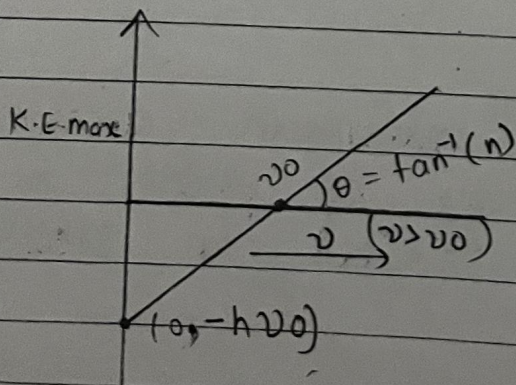 K.E-max
νο
θ = tan⁻¹(n)
ν (ν>νο)
(0,-hνο)